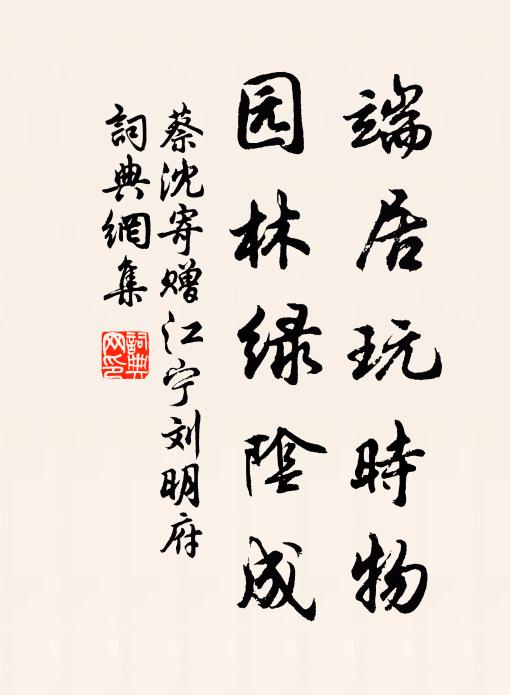 端居玩時物
园林绿陰成
蔡沈寄赠江宁刘明府
詞典網集
詞典网印